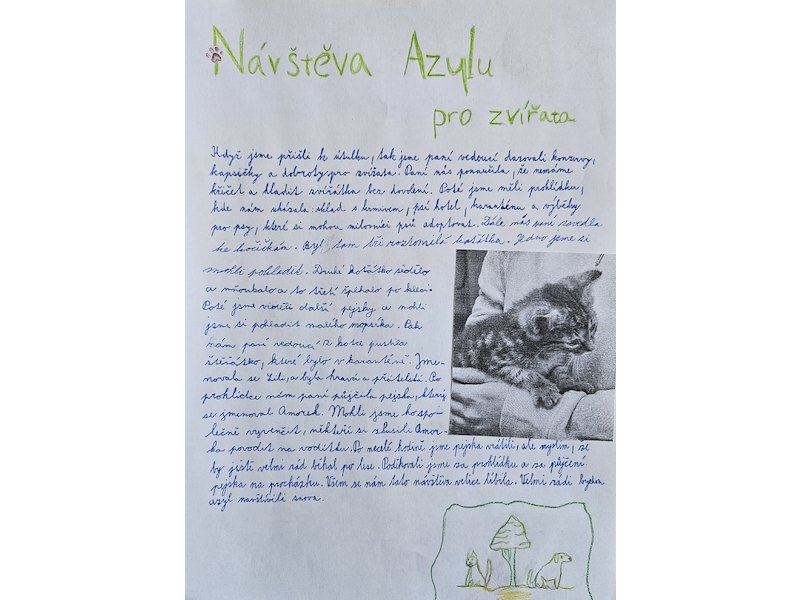 Návštěva Azylu
pro zvířata
Když jsme přišli k útulku, tak jsme paní vedoucí darovali konzervy,
kapsičky a dobroty pro zvířata. Paní nás ponaučila, že nemáme
křičet a hladit zvířátka bez dovolení. Poté jsme měli prohlídku,
kde nám ukázala sklad s krmivem, psí hotel, karanténu a výběhy
pro psy, které si mohou milovníci psů adoptovat. Dále nás paní zavedla
ke kočičkám. Byl tam tři roztomilá koťátka. Jedno jsme si
mohli pohladit. Druhé koťátko sedělo
a mňoukalo a to třetí šplhalo po kleci.
Poté jsme viděli další pejsky a mohli
jsme si pohladit malého mopsíka. Pak
nám paní vedoucí z kotce pustila
štěňátko, které bylo v karanténě. Jme-
novala se Lili, a byla hravá a přátelská. Po
prohlídce nám paní půjčila pejska, který
se jmenoval Amorek. Mohli jsme ho spo-
lečně vyvenčit, někteří si zkusili Amor-
ka povodit na vodítku. Po necelé hodině jsme pejska vrátili, ale myslím, že
by jistě velmi rád běhal po lese. Poděkovali jsme za prohlídku a za půjčení
pejska na procházku. Všem se nám tato návštěva velice líbila. Velmi rádi bychom
azyl navštívili znova.